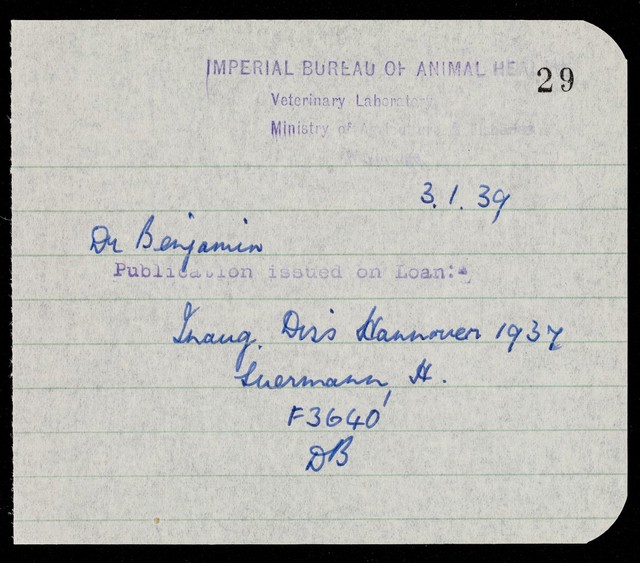 IMPERIAL BUREAU OF ANIMAL HEA
29
Veterinary Laboratory
Ministry of Agriculture & Fisheries
3.1.39
Dr Benjamin
Publication issued on Loan:-
Inaug. Diss Hannover 1937
Suermann, H.
F3640
DB